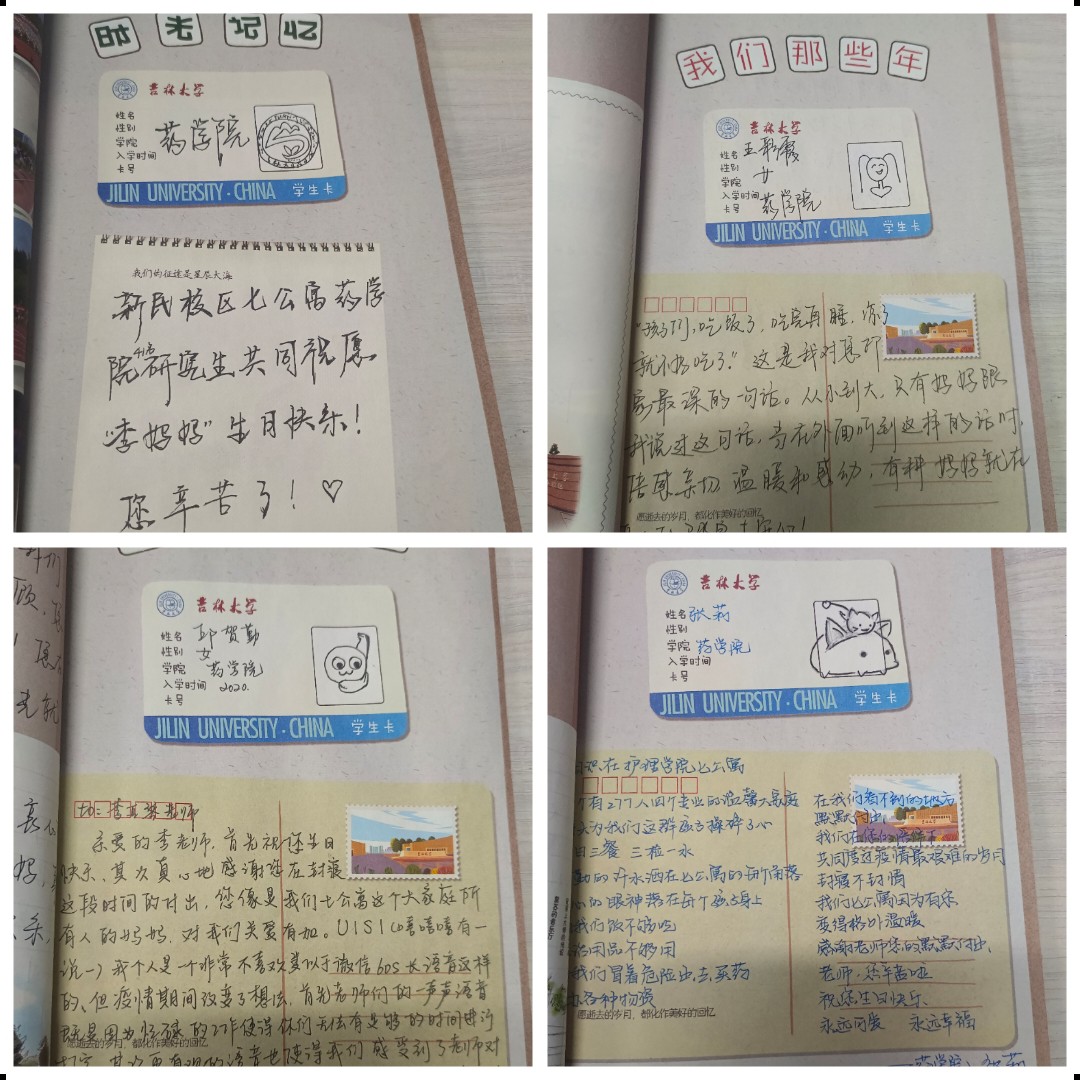 时光记忆
吉林大学
姓名
性别
学院
入学时间
卡号
药学院
JILIN UNIVERSITY·CHINA 学生卡
我们的征途是星辰大海
新民校区七公寓药学
院研究生共同祝愿
"李妈妈"生日快乐!
您辛苦了!♡
我们那些年
吉林大学
姓名 王
性别 女
学院
入学时间 药学院
卡号
JILIN UNIVERSITY·CHINA 学生卡
"孩子们,吃饭了,吃完再睡,凉了
就不好吃了!"这是我对您印
象最深的一句话。从小到大,只有妈妈跟
我说过这句话,当在外面听到这样的话时,
倍感亲切温暖和感动,有种妈妈就在
愿逝去的岁月,都化作美好的回忆
吉林大学
姓名 邱贺勤
性别 女
学院 药学院
入学时间 2020.
卡号
JILIN UNIVERSITY·CHINA 学生卡
亲爱的李老师,首先祝您生日
快乐、其次真心地感谢您在封寝
这段时间的付出,您像是我们七公寓这个大家庭所
有人的妈妈,对我们关爱有加。U1S1(嘻嘻嘻有一
说一)我个人是一个非常不喜欢类似于微信60s长语音这样
的、但疫情期间改变了想法,首先老师们的一声声语音
既是因为忙碌的工作使得你们无法有足够的时间进行
愿逝去的岁月,都化作美好的回忆
打字,其次更有观的语音也使得我们感受到了老师对
吉林大学
姓名 张莉
性别
学院 药学院
入学时间
卡号
JILIN UNIVERSITY·CHINA 学生卡
在护理学院七公寓
有277人四个专业的温馨大家庭
为我们这群孩子操碎了心
日三餐 三检一水
勤的汗水洒在七公寓的每个角落
心的眼神落在每个孩子身上
我们饭不够吃
药用品不够用
我们冒着危险出去买药
各种物资
愿逝去的岁月,都化作美好的回忆
在我们看不到的地方
默默付出
共同度过疫情最艰难的岁月
封寝不封情
我们七公寓因为有您
变得格外温暖
感谢老师您的默默付出、
老师,您辛苦啦
祝您生日快乐、
永远可爱 永远幸福